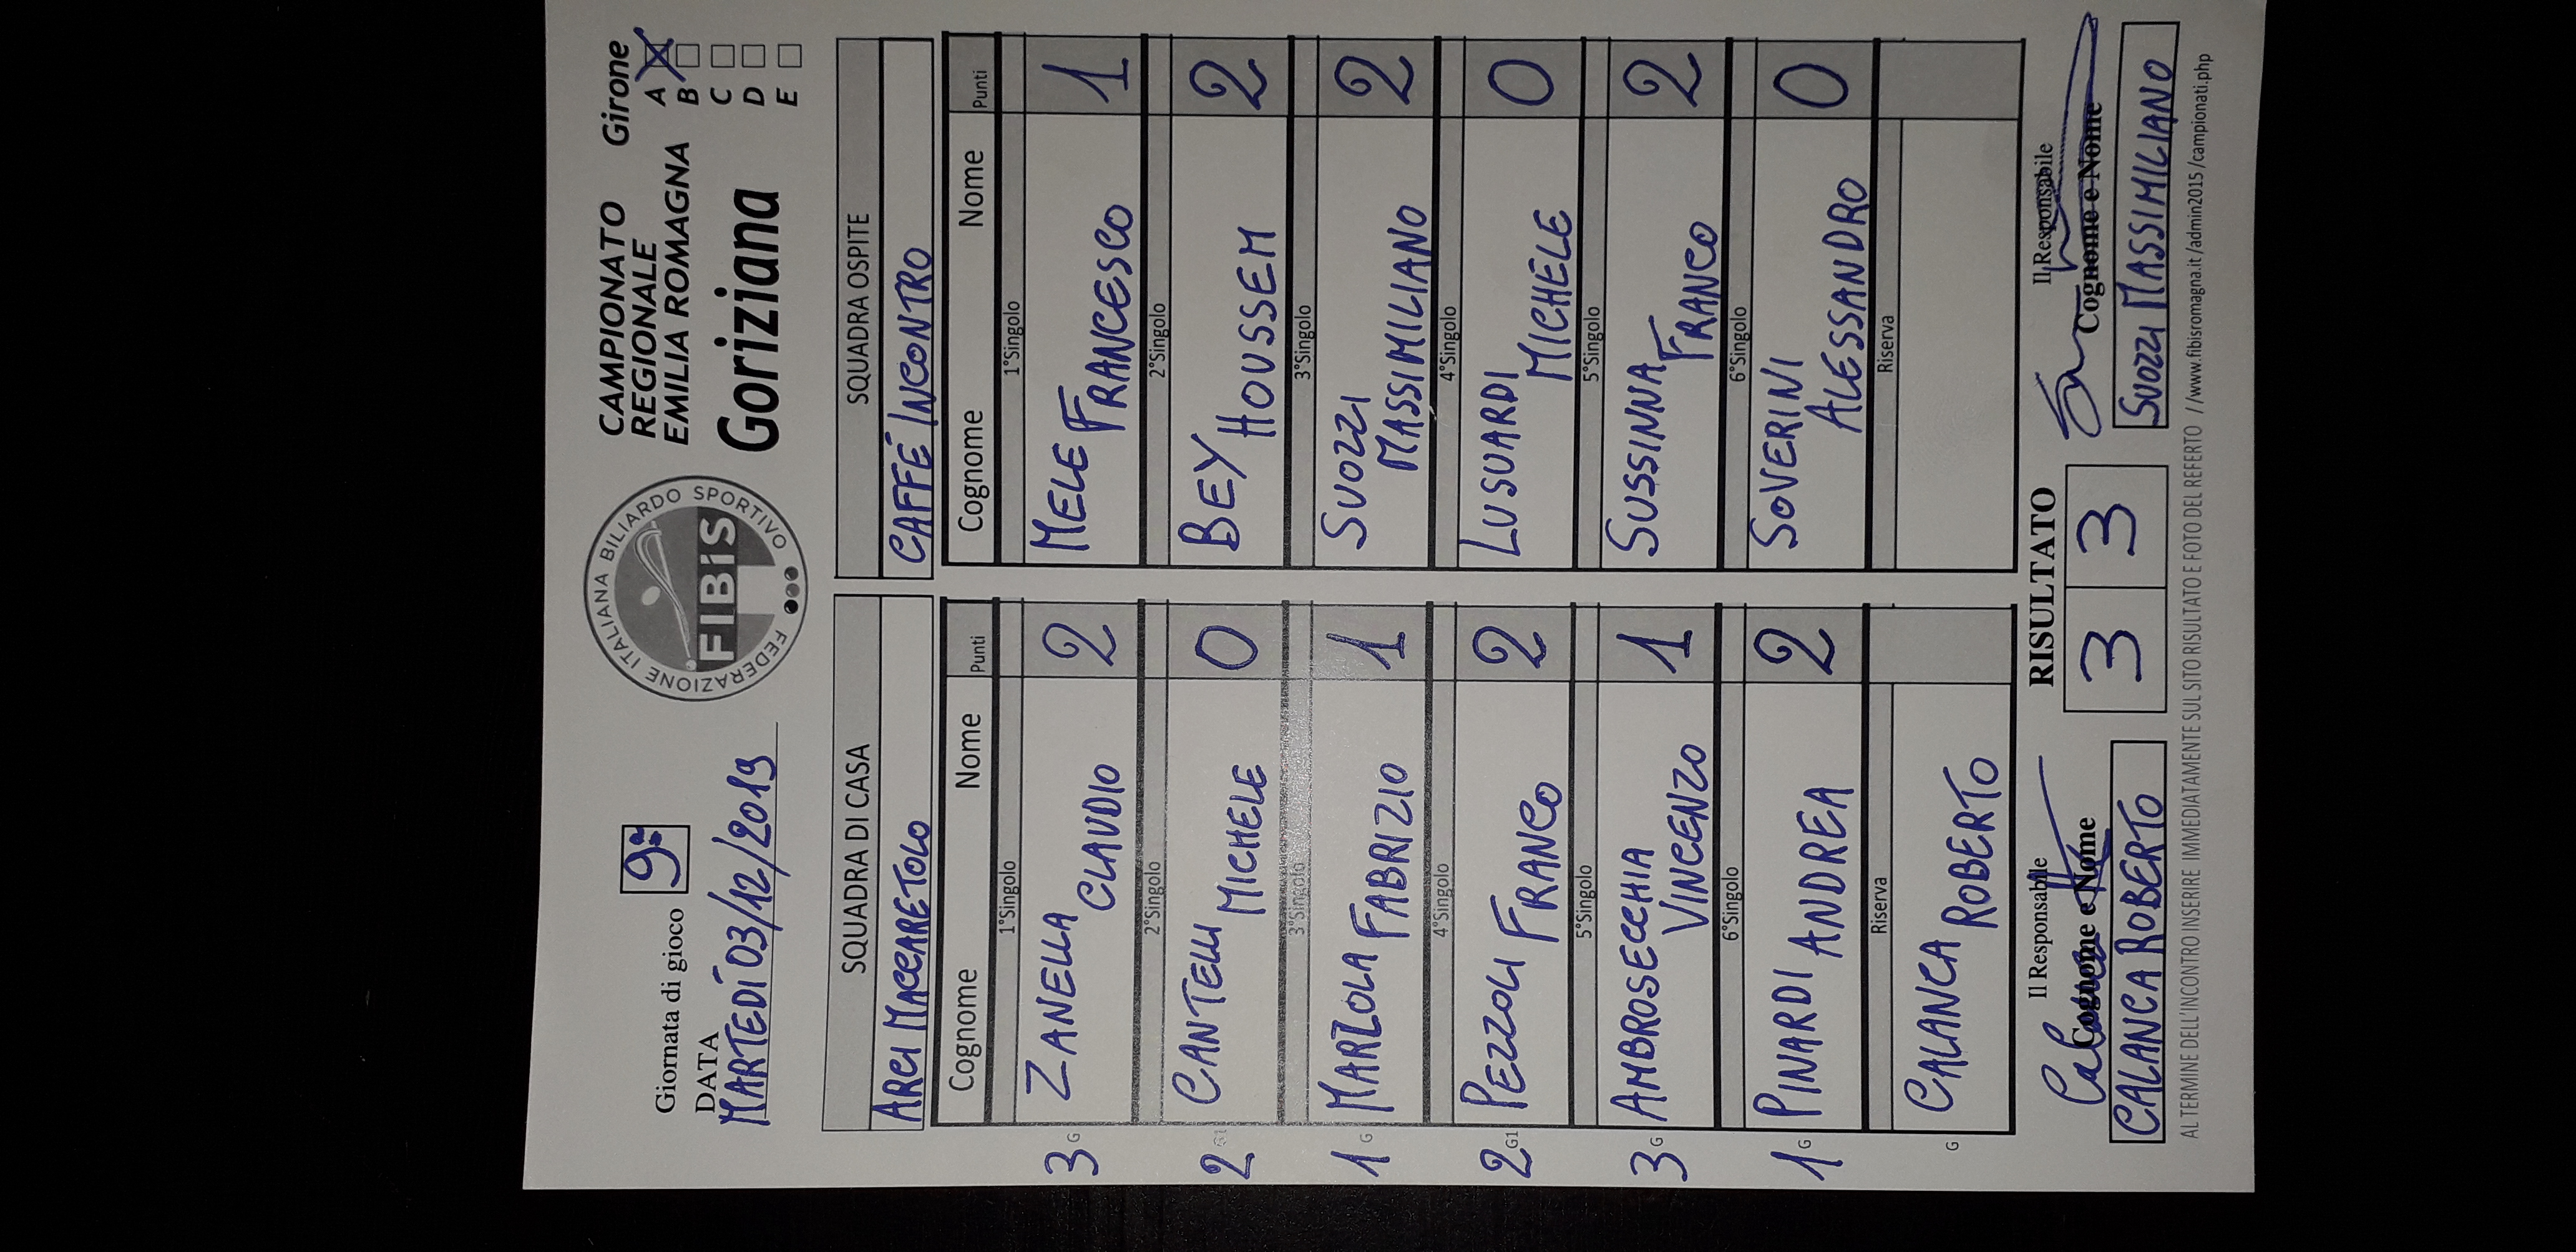 Giornata di gioco 9ª
DATA
MARTEDÍ 03/12/2019
FEDERAZIONE ITALIANA BILIARDO SPORTIVO
FIBiS
CAMPIONATO
REGIONALE
EMILIA ROMAGNA
Goriziana
Girone
A X
B
C
D
E
SQUADRA DI CASA
ARCI MACCARETOLO
Cognome Nome Punti
1°Singolo
3 G ZANELLA CLAUDIO 2
2°Singolo
2 G1 CANTELLI MICHELE 0
3°Singolo
1 G MARZOLA FABRIZIO 1
4°Singolo
2 G1 PEZZOLI FRANCO 2
5°Singolo
3 G AMBROSECCHIA VINCENZO 1
6°Singolo
1 G PINARDI ANDREA 2
Riserva
G CALANCA ROBERTO
SQUADRA OSPITE
CAFFÉ INCONTRO
Cognome Nome Punti
1°Singolo
MELE FRANCESCO 1
2°Singolo
BEY HOUSSEM 2
3°Singolo
SUOZZI MASSIMILIANO 2
4°Singolo
LUSUARDI MICHELE 0
5°Singolo
SUSSINNA FRANCO 2
6°Singolo
SOVERINI ALESSANDRO 0
Riserva
Il Responsabile
Cognome e Nome
CALANCA ROBERTO
RISULTATO
3 3
Il Responsabile
Cognome e Nome
SUOZZI MASSIMILIANO
AL TERMINE DELL'INCONTRO INSERIRE IMMEDIATAMENTE SUL SITO RISULTATO E FOTO DEL REFERTO //www.fibisromagna.it/admin2015/campionati.php